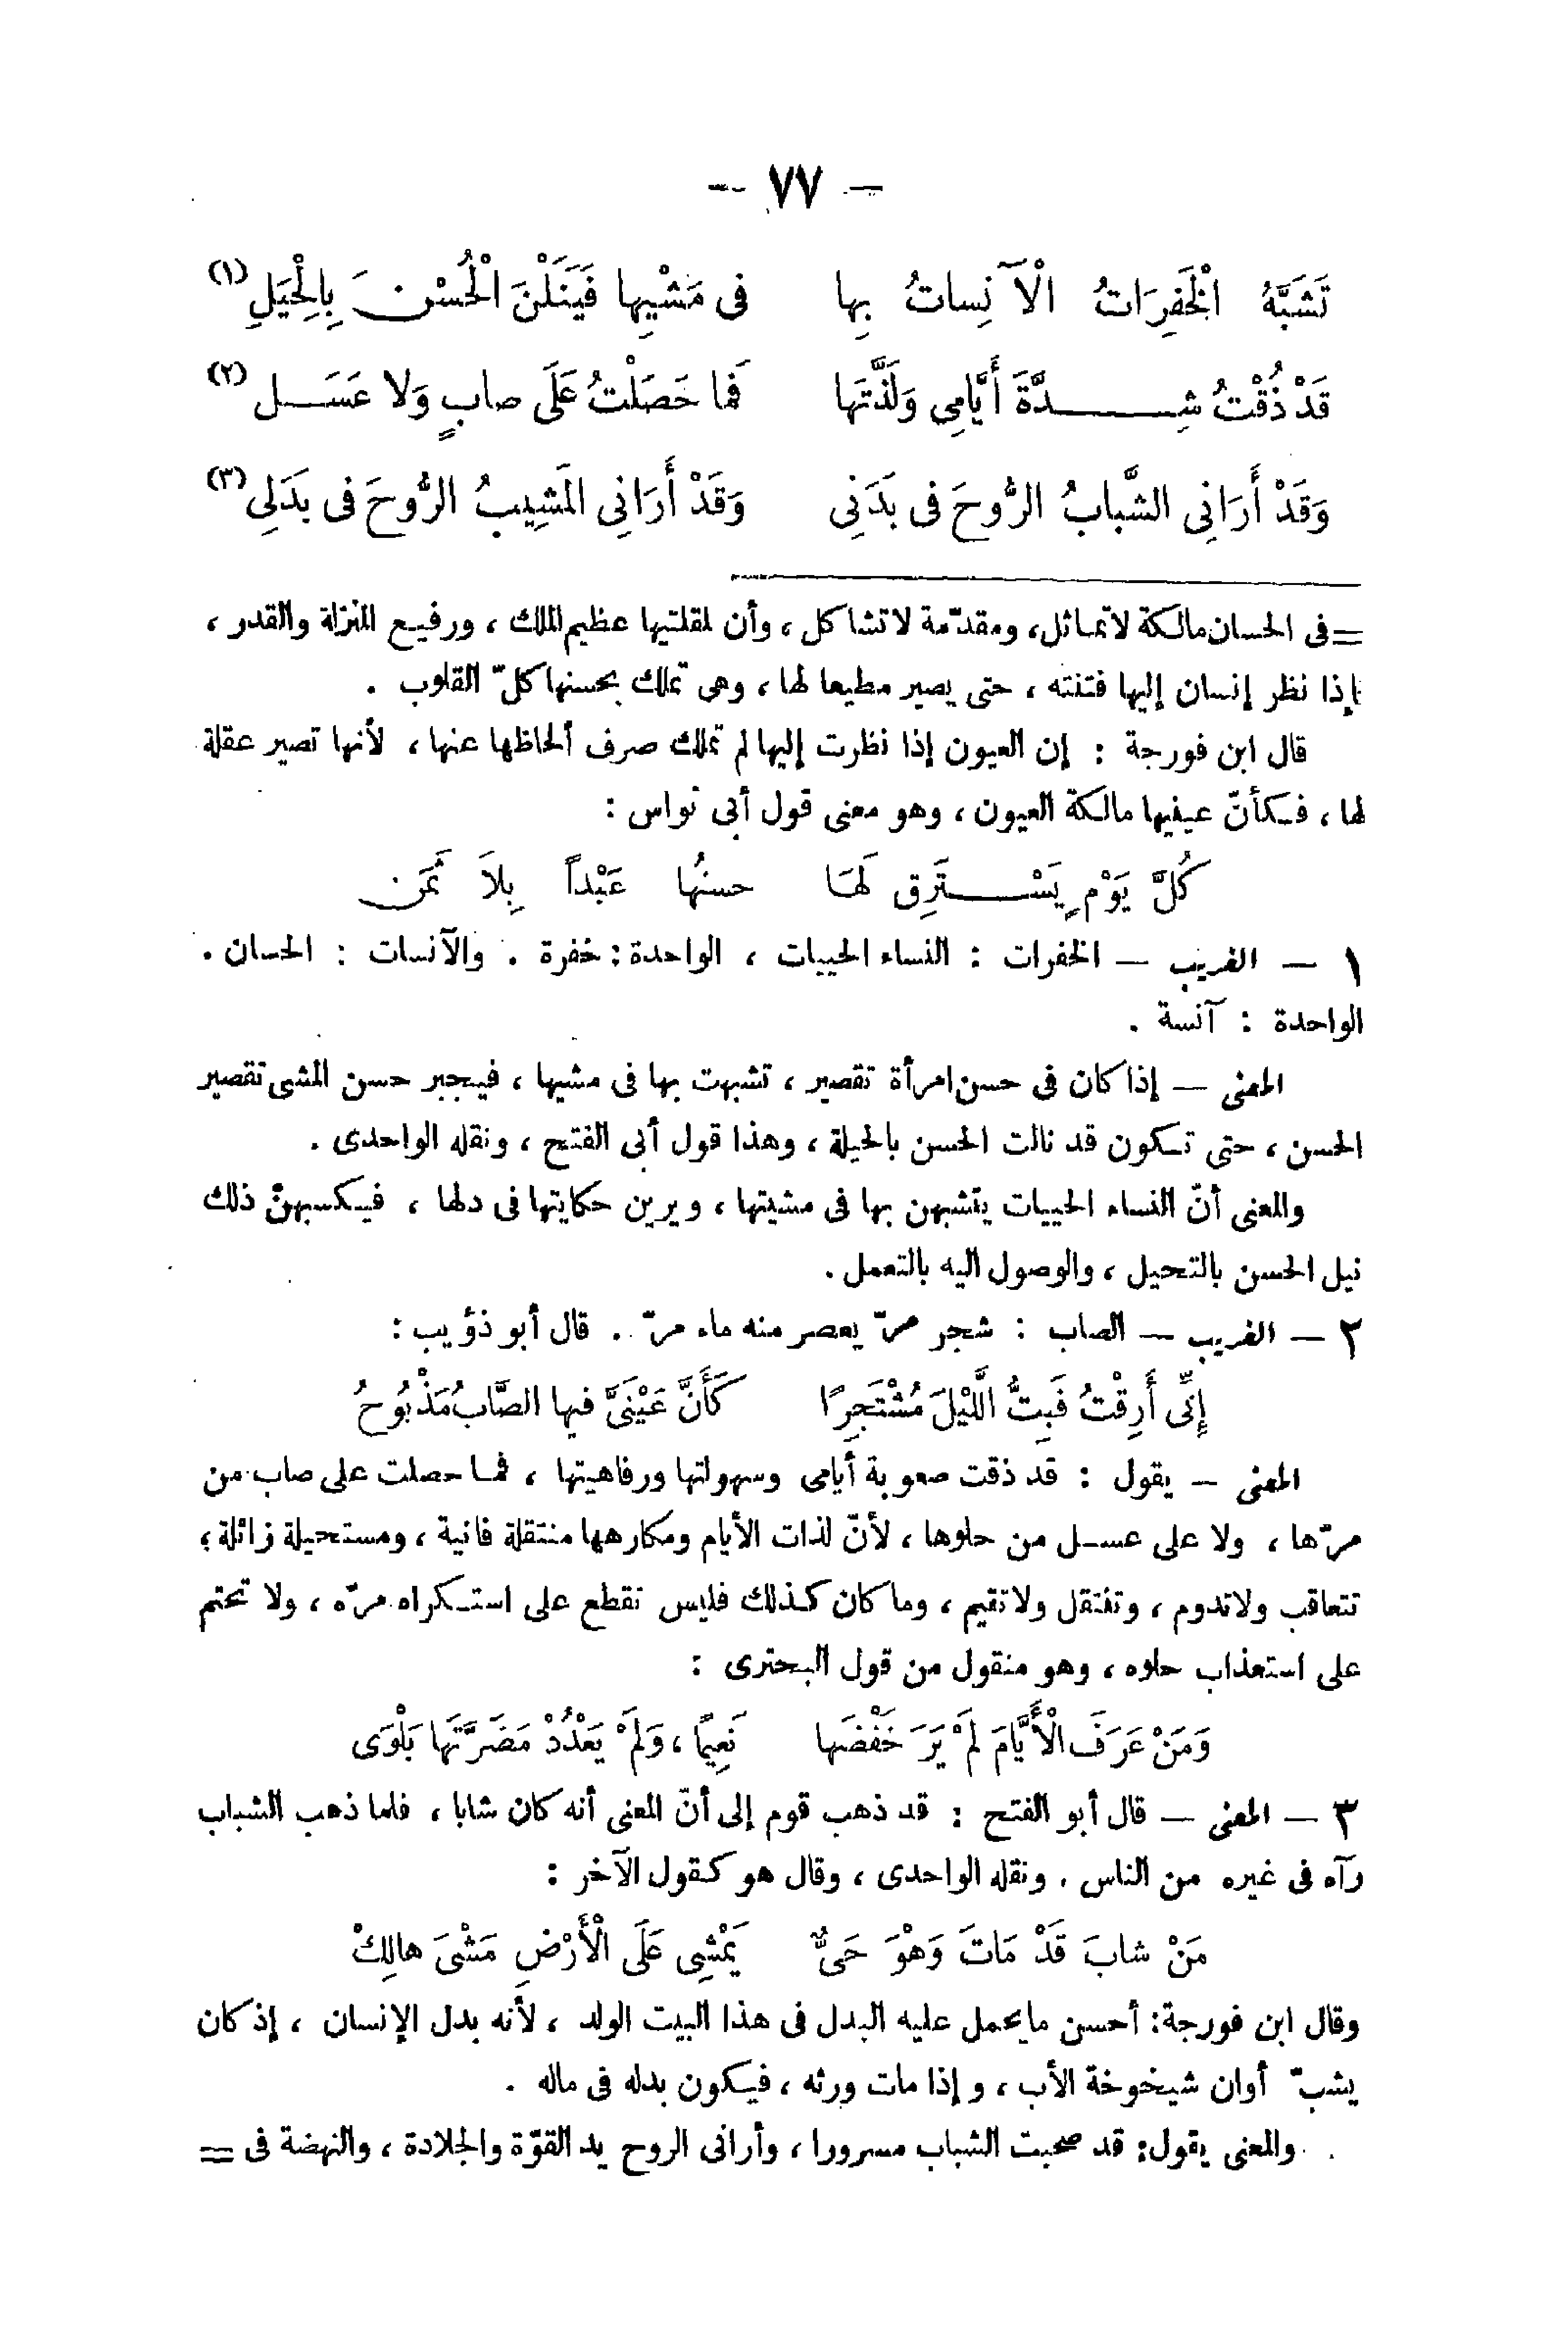 — ٧٧ —
تَشَبَّهُ الْخَفِرَاتُ الْآنِساتُ بِها فى مَشْيِها فَيَنَلْنَ الْحُسْنَ بِالْحِيَلِ (١)
قَدْ ذُقْتُ شِدَّةَ أَيَّامِى وَلَذَّتَها فَما حَصَلْتُ عَلَى صابٍ وَلا عَسَلِ (٢)
وَقَدْ أَرَانِى الشَّبابُ الرُّوحَ فى بَدَنِى وَقَدْ أَرَانِى المَشِيبُ الرُّوحَ فى بَدَلِى (٣)
= فى الحسان مالكة لا تماثل، ومقدّمة لا تشاكل، وأن لمقلتيها عظيم الملك، ورفيع المنزلة والقدر،
إذا نظر إنسان إليها فتنته، حتى يصير مطيعا لها، وهى تملك بحسنها كلّ القلوب.
قال ابن فورجة : إن العيون إذا نظرت إليها لم تملك صرف ألحاظها عنها، لأنها تصير عقلة
لها، فكأنّ عينيها مالكة العيون، وهو معنى قول أبى نواس :
كُلَّ يَوْمٍ يَسْتَرِق لَهَا حسنُها عَبْداً بِلاَ ثَمَن
١ — الغريب — الخفرات : النساء الحييات، الواحدة : خفرة. والآنسات : الحسان.
الواحدة : آنسة.
المعنى — إذا كان فى حسن امرأة تقصير، تشبهت بها فى مشيها، فيجبر حسن المشى تقصير
الحسن، حتى تكون قد نالت الحسن بالحيلة، وهذا قول أبى الفتح، ونقله الواحدى.
والمعنى أنّ النساء الحييات يتشبهن بها فى مشيتها، ويرين حكايتها فى دلها، فيكسبهنّ ذلك
نيل الحسن بالتحيل، والوصول اليه بالتعمل.
٢ — الغريب — الصاب : شجر مرّ يعصر منه ماء مرّ. قال أبو ذؤيب :
إِنِّى أَرِقْتُ فَبِتُّ اللَّيْلَ مُشْتَجِرًا كَأَنَّ عَيْنَىَّ فيها الصَّابُ مَذْبُوحُ
المعنى — يقول : قد ذقت صعوبة أيامى وسهولتها ورفاهيتها، فما حصلت على صاب من
مرّها، ولا على عسل من حلوها، لأنّ لذات الأيام ومكارهها منتقلة فانية، ومستحيلة زائلة؛
تتعاقب ولا تدوم، وتنتقل ولا تقيم، وما كان كذلك فليس نقطع على استكراه مرّه، ولا تحتم
على استعذاب حلوه، وهو منقول من قول البحترى :
وَمَنْ عَرَفَ الْأَيَّامَ لَمْ يَرَ خَفْضَها نَعِيمًا، وَلَمْ يَعْدُدْ مَضَرَّتَها بَلْوَى
٣ — المعنى — قال أبو الفتح : قد ذهب قوم إلى أنّ المعنى أنه كان شابا، فلما ذهب الشباب
رآه فى غيره من الناس. ونقله الواحدى، وقال هو كقول الآخر :
مَنْ شابَ قَدْ مَاتَ وَهْوَ حَىٌّ يَمْشِى عَلَى الْأَرْضِ مَشْىَ هالِكْ
وقال ابن فورجة: أحسن ما يحمل عليه البدل فى هذا البيت الولد، لأنه بدل الإنسان، إذ كان
يشبّ أوان شيخوخة الأب، وإذا مات ورثه، فيكون بدله فى ماله.
والمعنى يقول: قد صحبت الشباب مسرورا، وأرانى الروح يد القوّة والجلادة، والنهضة فى =